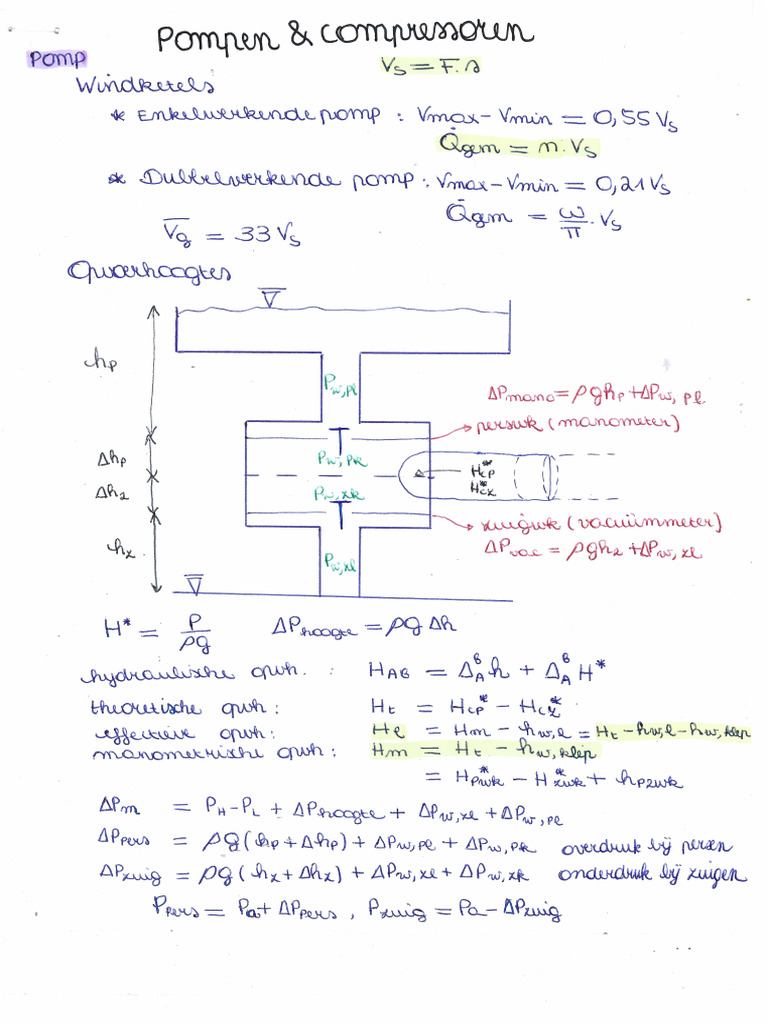 Pompen & compressoren
Pomp
Vs = F.s
Windketels
* Enkelwerkende pomp : Vmax - Vmin = 0,55 Vs
Q̇gem = n.Vs
* Dubbelwerkende pomp : Vmax - Vmin = 0,21 Vs
Q̇gem = ω/π . Vs
V̄g = 33 Vs
Opvoerhoogtes
hp
Pw,pl
ΔPmano = ρghp + ΔPw,pl
perswk (manometer)
Δhp
Pw,pk
H*cp
Δhz
Pw,zk
H*cz
zuigwk (vacuümmeter)
hz
ΔPvac = ρghz + ΔPw,zl
Pw,zl
H* = P/ρg
ΔPhoogte = ρgΔh
hydraulische opvh. : HAB = Δ_A^B h + Δ_A^B H*
theoretische opvh: Ht = Hcp* - Hcz*
effectieve opvh: He = Hm - hw,l = Ht - hw,l - hw,klep
manometrische opvh: Hm = Ht - hw,klep
= H*pwk - H*zwk + hpzwk
ΔPm = PH - PL + ΔPhoogte + ΔPw,zl + ΔPw,pl
ΔPpers = ρg(hp + Δhp) + ΔPw,pl + ΔPw,pk overdruk bij persen
ΔPzuig = ρg(hz + Δhz) + ΔPw,zl + ΔPw,zk onderdruk bij zuigen
Ppers = Pa + ΔPpers , Pzuig = Pa - ΔPzuig